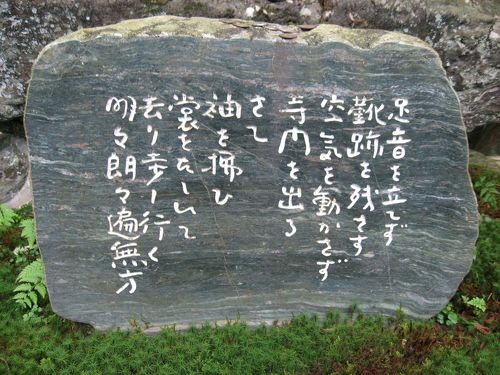 足音を立てず
靴跡を残さず
空気を動かさず
寺内を出る
さて
袖を拂ひ
裳をたーいて
去り歩ー行く
明々朗々遍無方